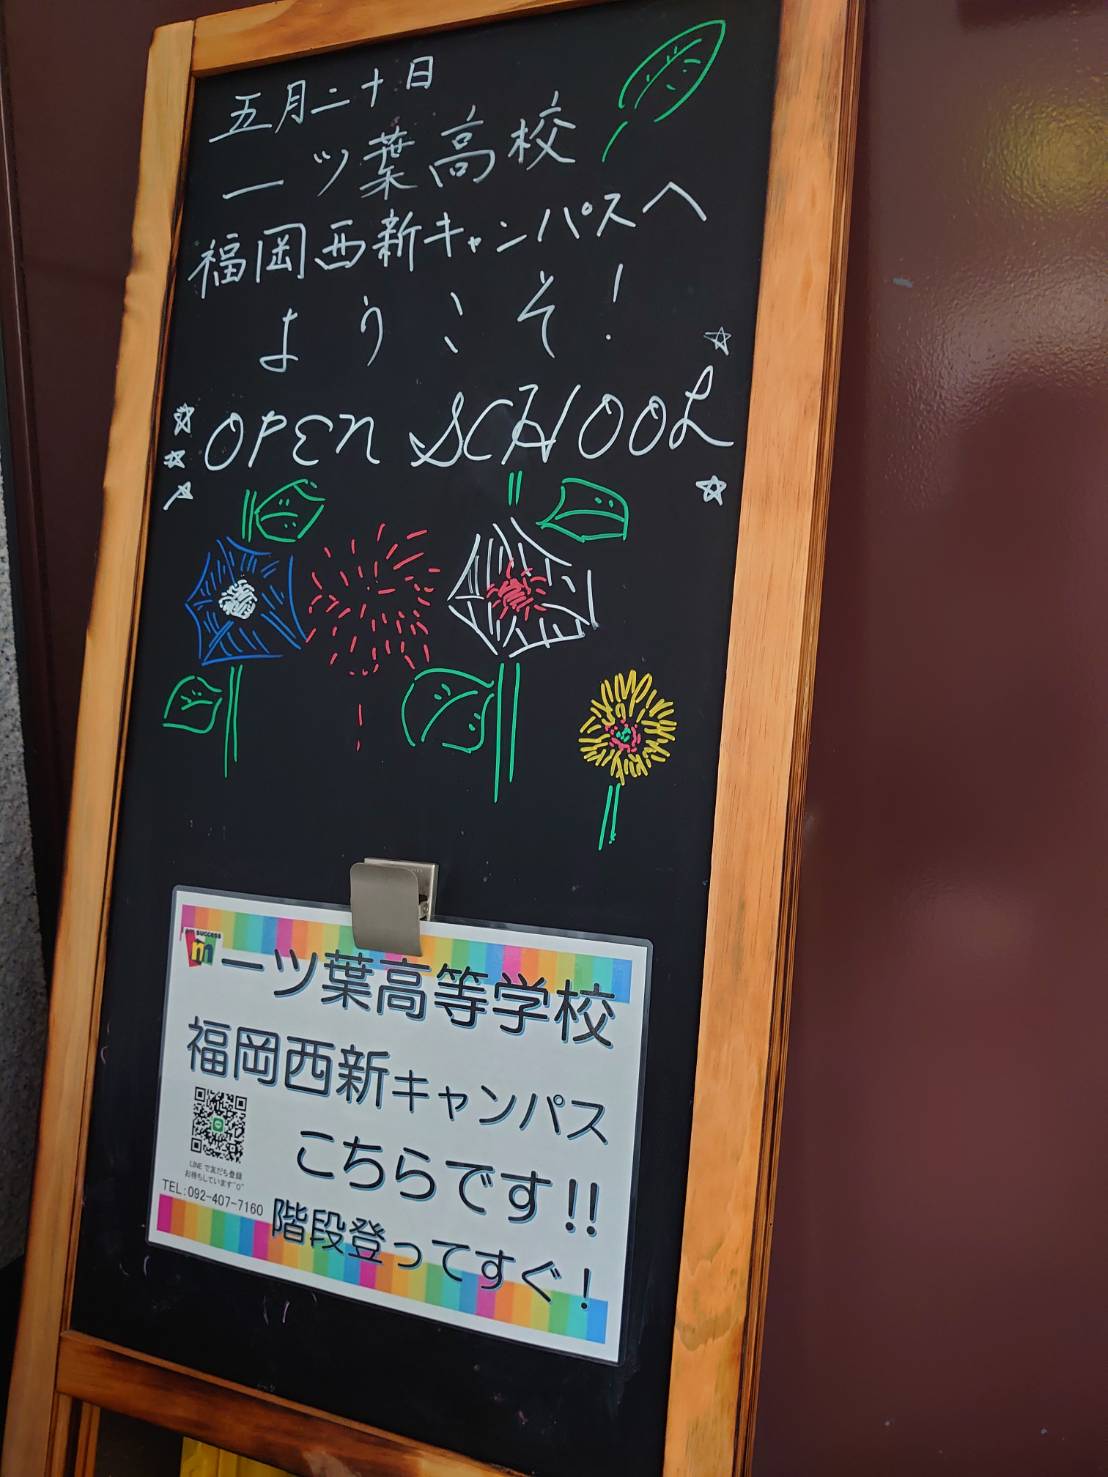 五月二十日
一ツ葉高校
福岡西新キャンパスへ
ようこそ!
OPEN SCHOOL
success
m
一ツ葉高等学校
福岡西新キャンパス
こちらです!!
LINEで友だち登録
お待ちしています"0"
TEL:092-407-7160
階段登ってすぐ!